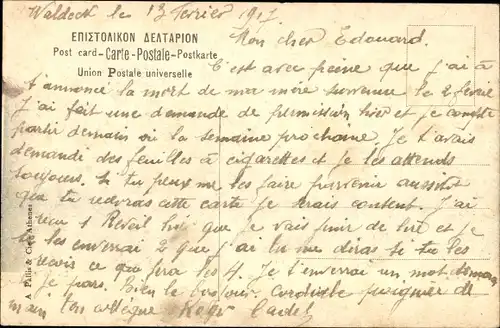 Waldeck le 13 Fevrier 1917
Mon cher Edouard.
ΕΠΙΣΤΟΛΙΚΟΝ ΔΕΛΤΑΡΙΟΝ
Post card - Carte-Postale - Postkarte
Union Postale universelle
C'est avec peine que j'ai à
t'annoncé la mort de ma mère survenue le 2 fevrie
J'ai fait une demande de permission hier et je compte
partir demain ou la semaine prochaine Je t'avais
demandé des feuilles à cigarettes et je les attends
toujours. Si tu peux me les faire parvenir aussitot
que tu recevras cette carte je serais content. J'ai
1 Reveil que je vais finir de lire et je
te les enverrai 2 que j'ai lu me diras si tu les
recois ce que fera les 4. Je t'enverrai un mot
je pars. Bien le bonjour cordiale poignée de
main Ton collègue
A. Pallis & Cie Athènes